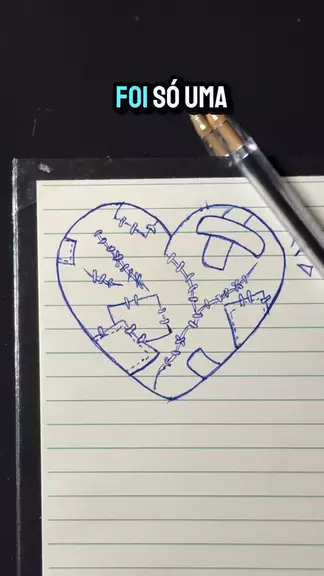 FOI SÓ UMA